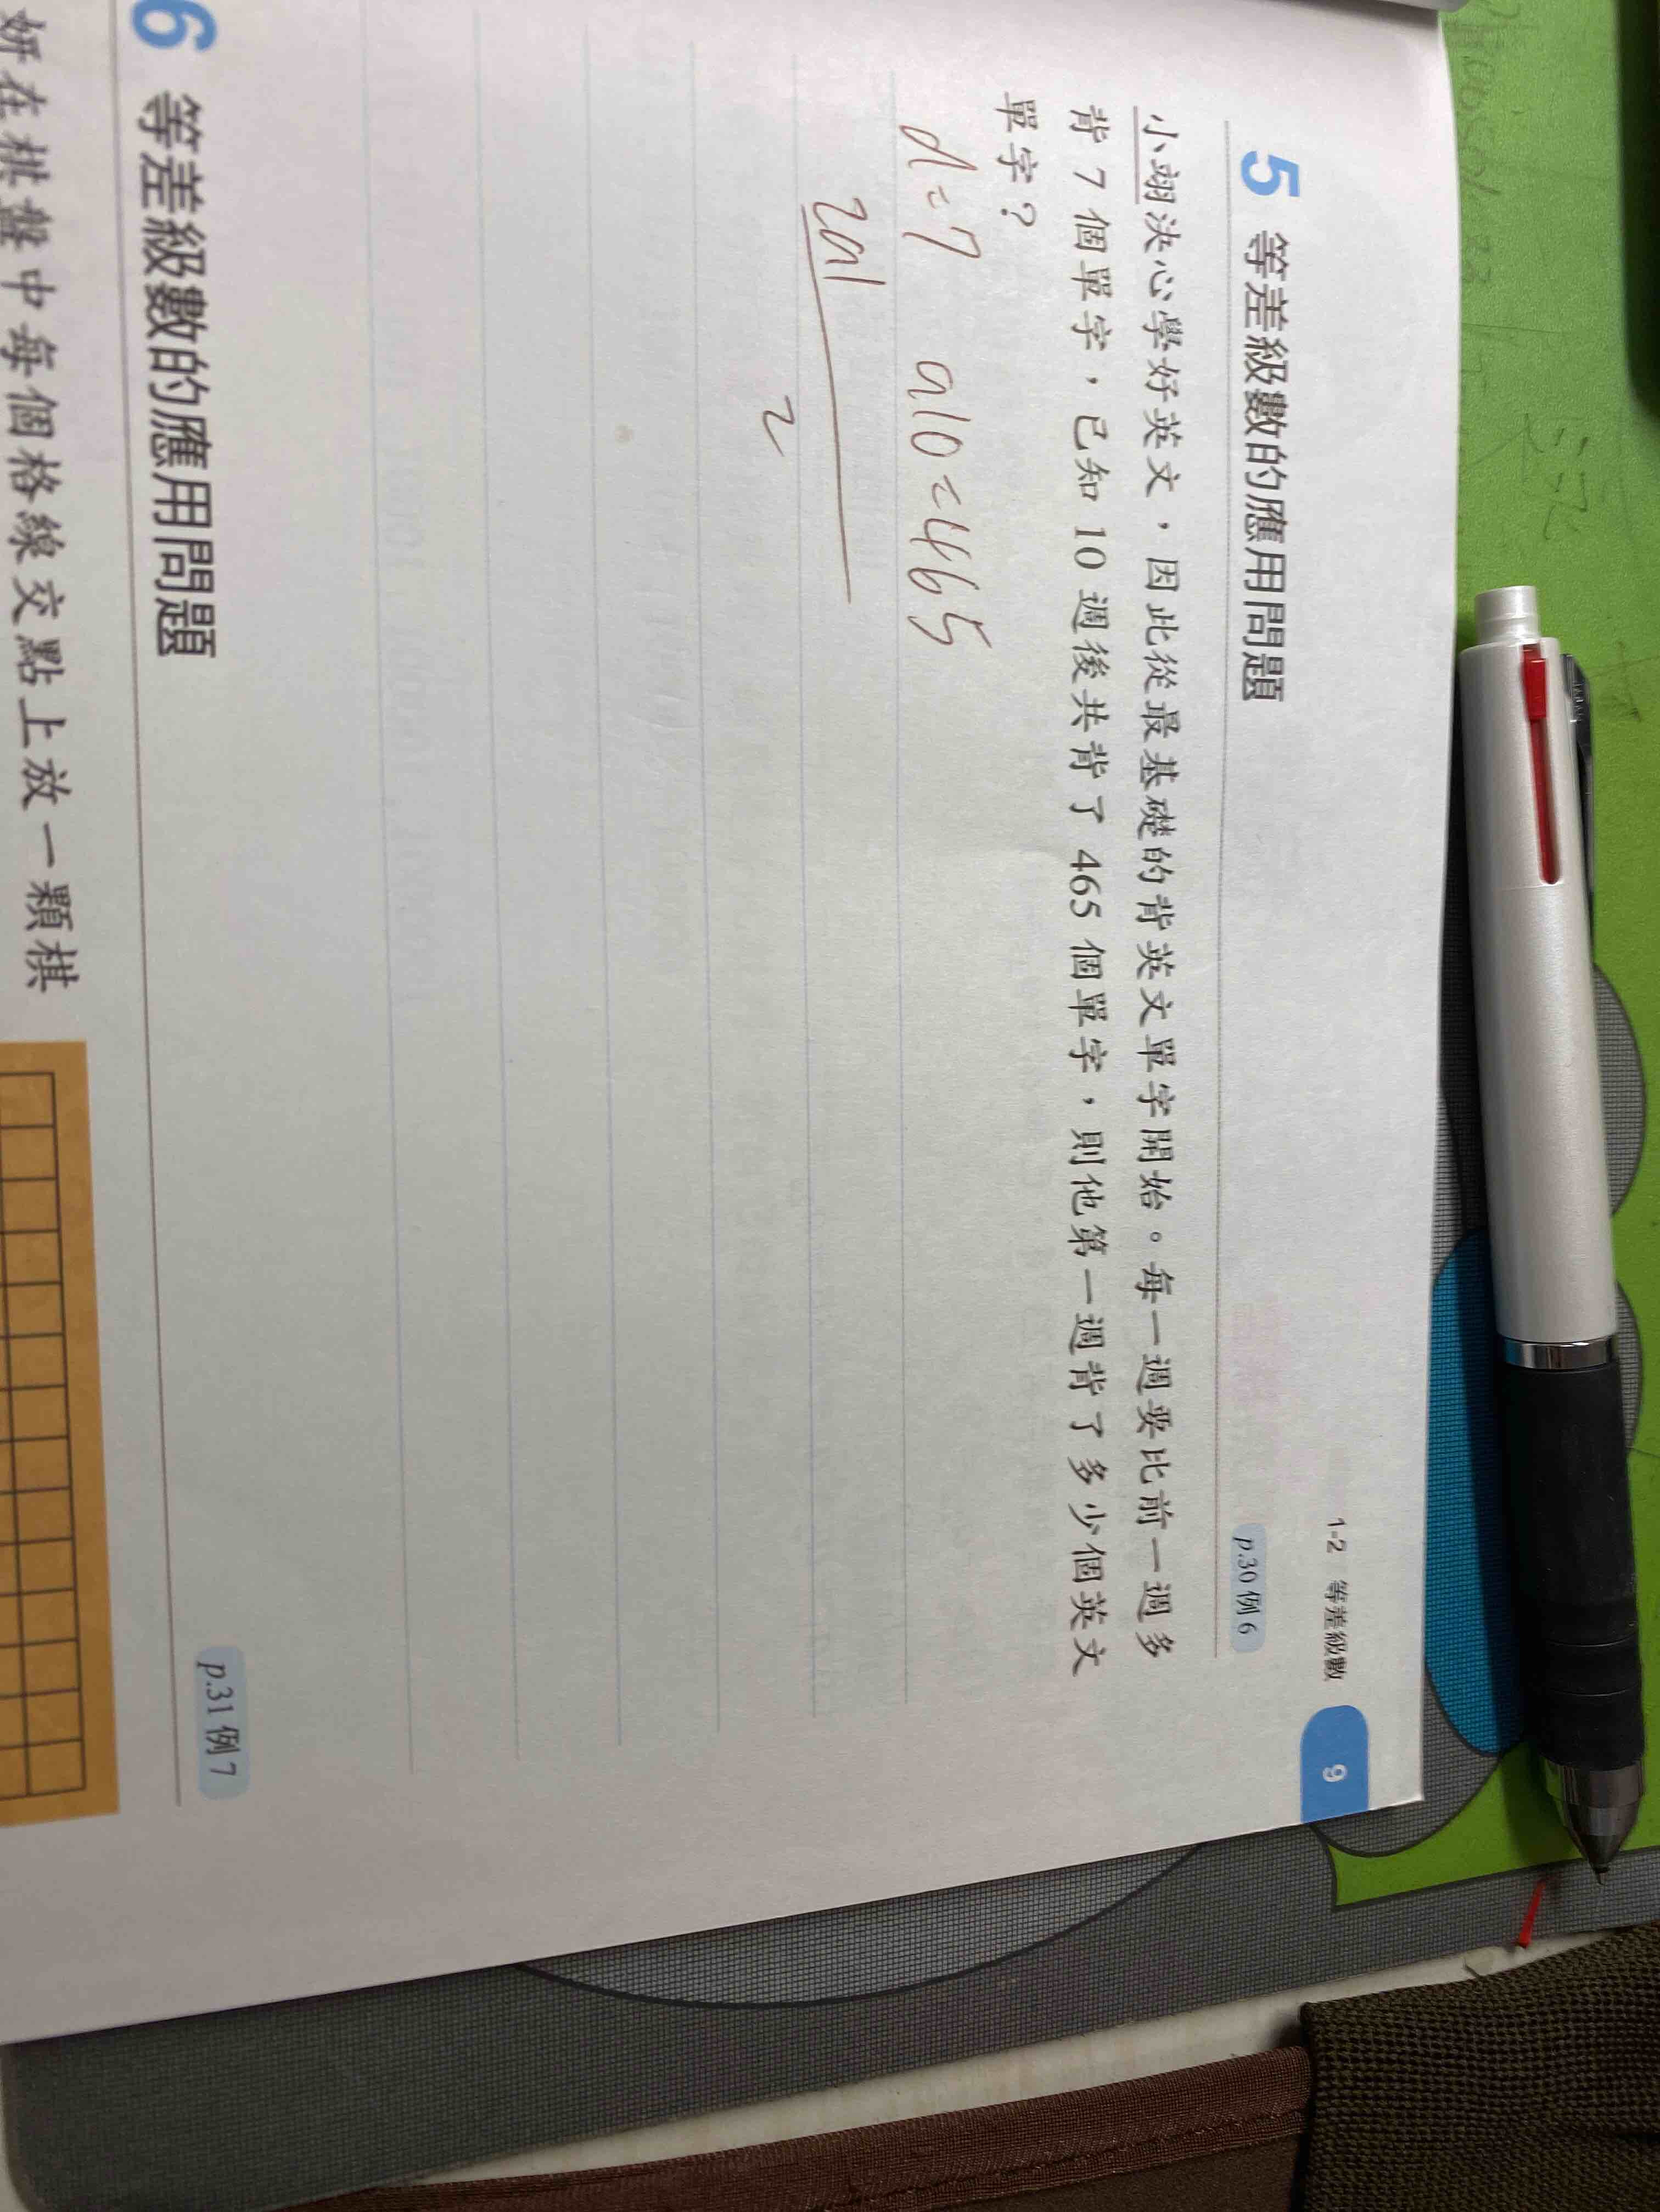 1-2 等差級數 9
5 等差級數的應用問題 p.30 例 6
小翊決心學好英文，因此從最基礎的背英文單字開始。每一週要比前一週多
背 7 個單字，已知 10 週後共背了 465 個單字，則他第一週背了多少個英文
單字？
d=7 a10=465
2a1
2
6 等差級數的應用問題 p.31 例 7
妍在棋盤中每個格線交點上放一顆棋